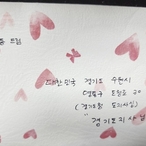 드림
대한민국 경기도 수원시
영통구 도청로 30
(경기도청 도지사실)
경기도지사님